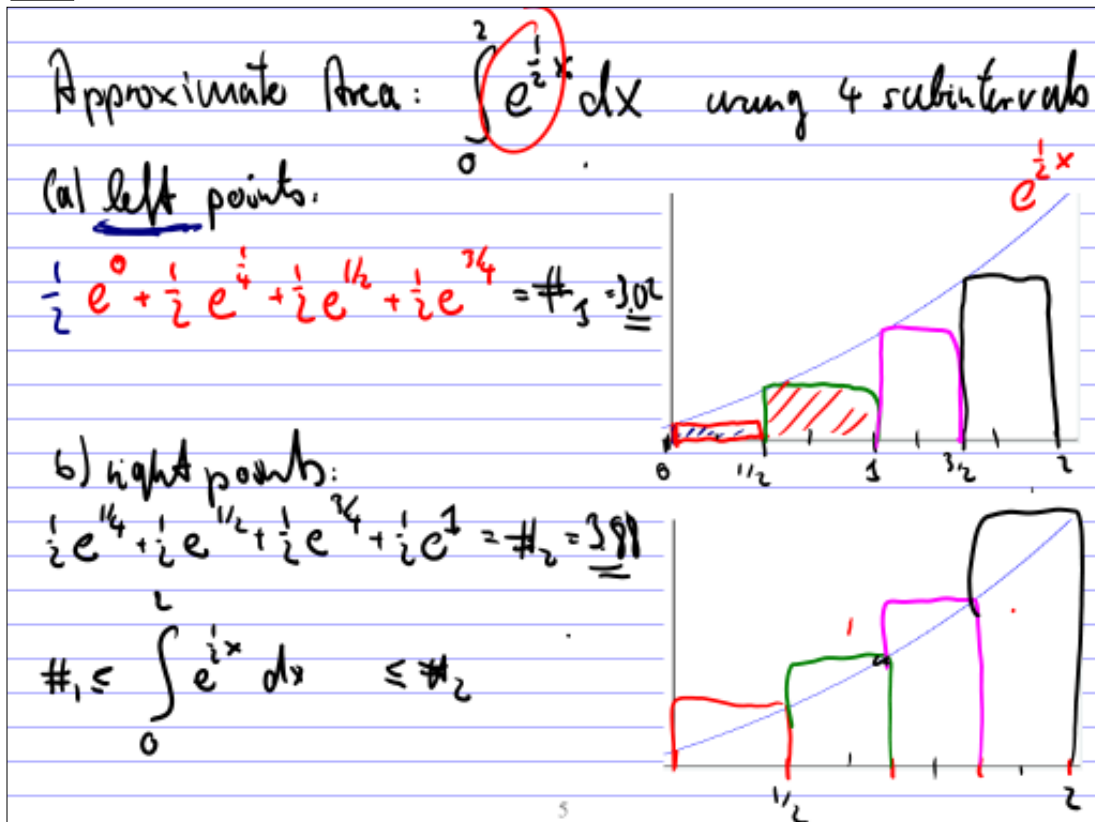 Approximate Area: ∫₀² e^{½x} dx using 4 subintervals
e^{½x}
(a) left points:
½ e^0 + ½ e^{¼} + ½ e^{1/2} + ½ e^{3/4} = #₁ = 3.02
0 1/2 1 3/2 2
b) right points:
½ e^{1/4} + ½ e^{1/2} + ½ e^{3/4} + ½ e^1 = #₂ = 3.88
#₁ ≤ ∫₀² e^{½x} dx ≤ #₂
1/2 2
5